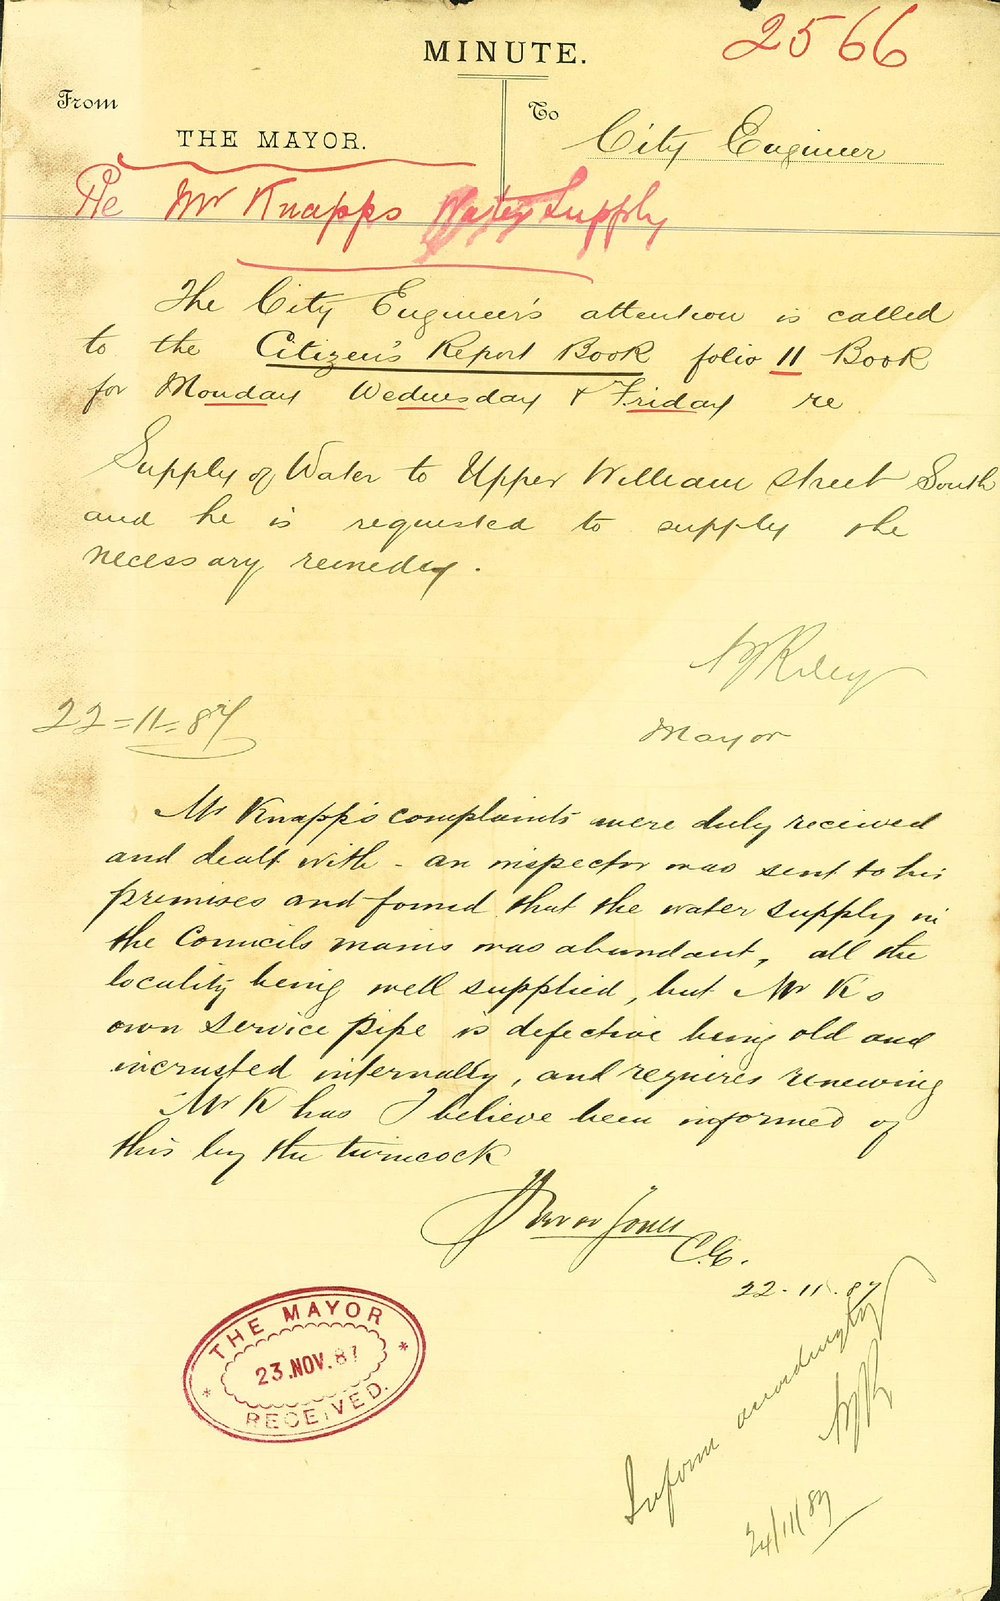 2566
MINUTE.
From
THE MAYOR.
To
City Engineer
Re Mr Knapps Water Supply
The City Engineer's attention is called
to the Citizen's Report Book folio 11 Book
for Monday Wednesday & Friday re
Supply of Water to Upper William Street South
and he is requested to supply the
necessary remedy.
Riley
Mayor
22-11-87
Mr Knapp's complaints were duly received
and dealt with - an inspector was sent to his
premises and found that the water supply in
the Councils mains was abundant, all the
locality being well supplied, but Mr Ks
own service pipe is defective being old and
incrusted internally, and requires renewing
Mr K has I believe been informed of
this by the turncock
Trevor Jones
C.E.
22.11.87
THE MAYOR
23.NOV.87
RECEIVED.
Inform accordingly
24/11/87